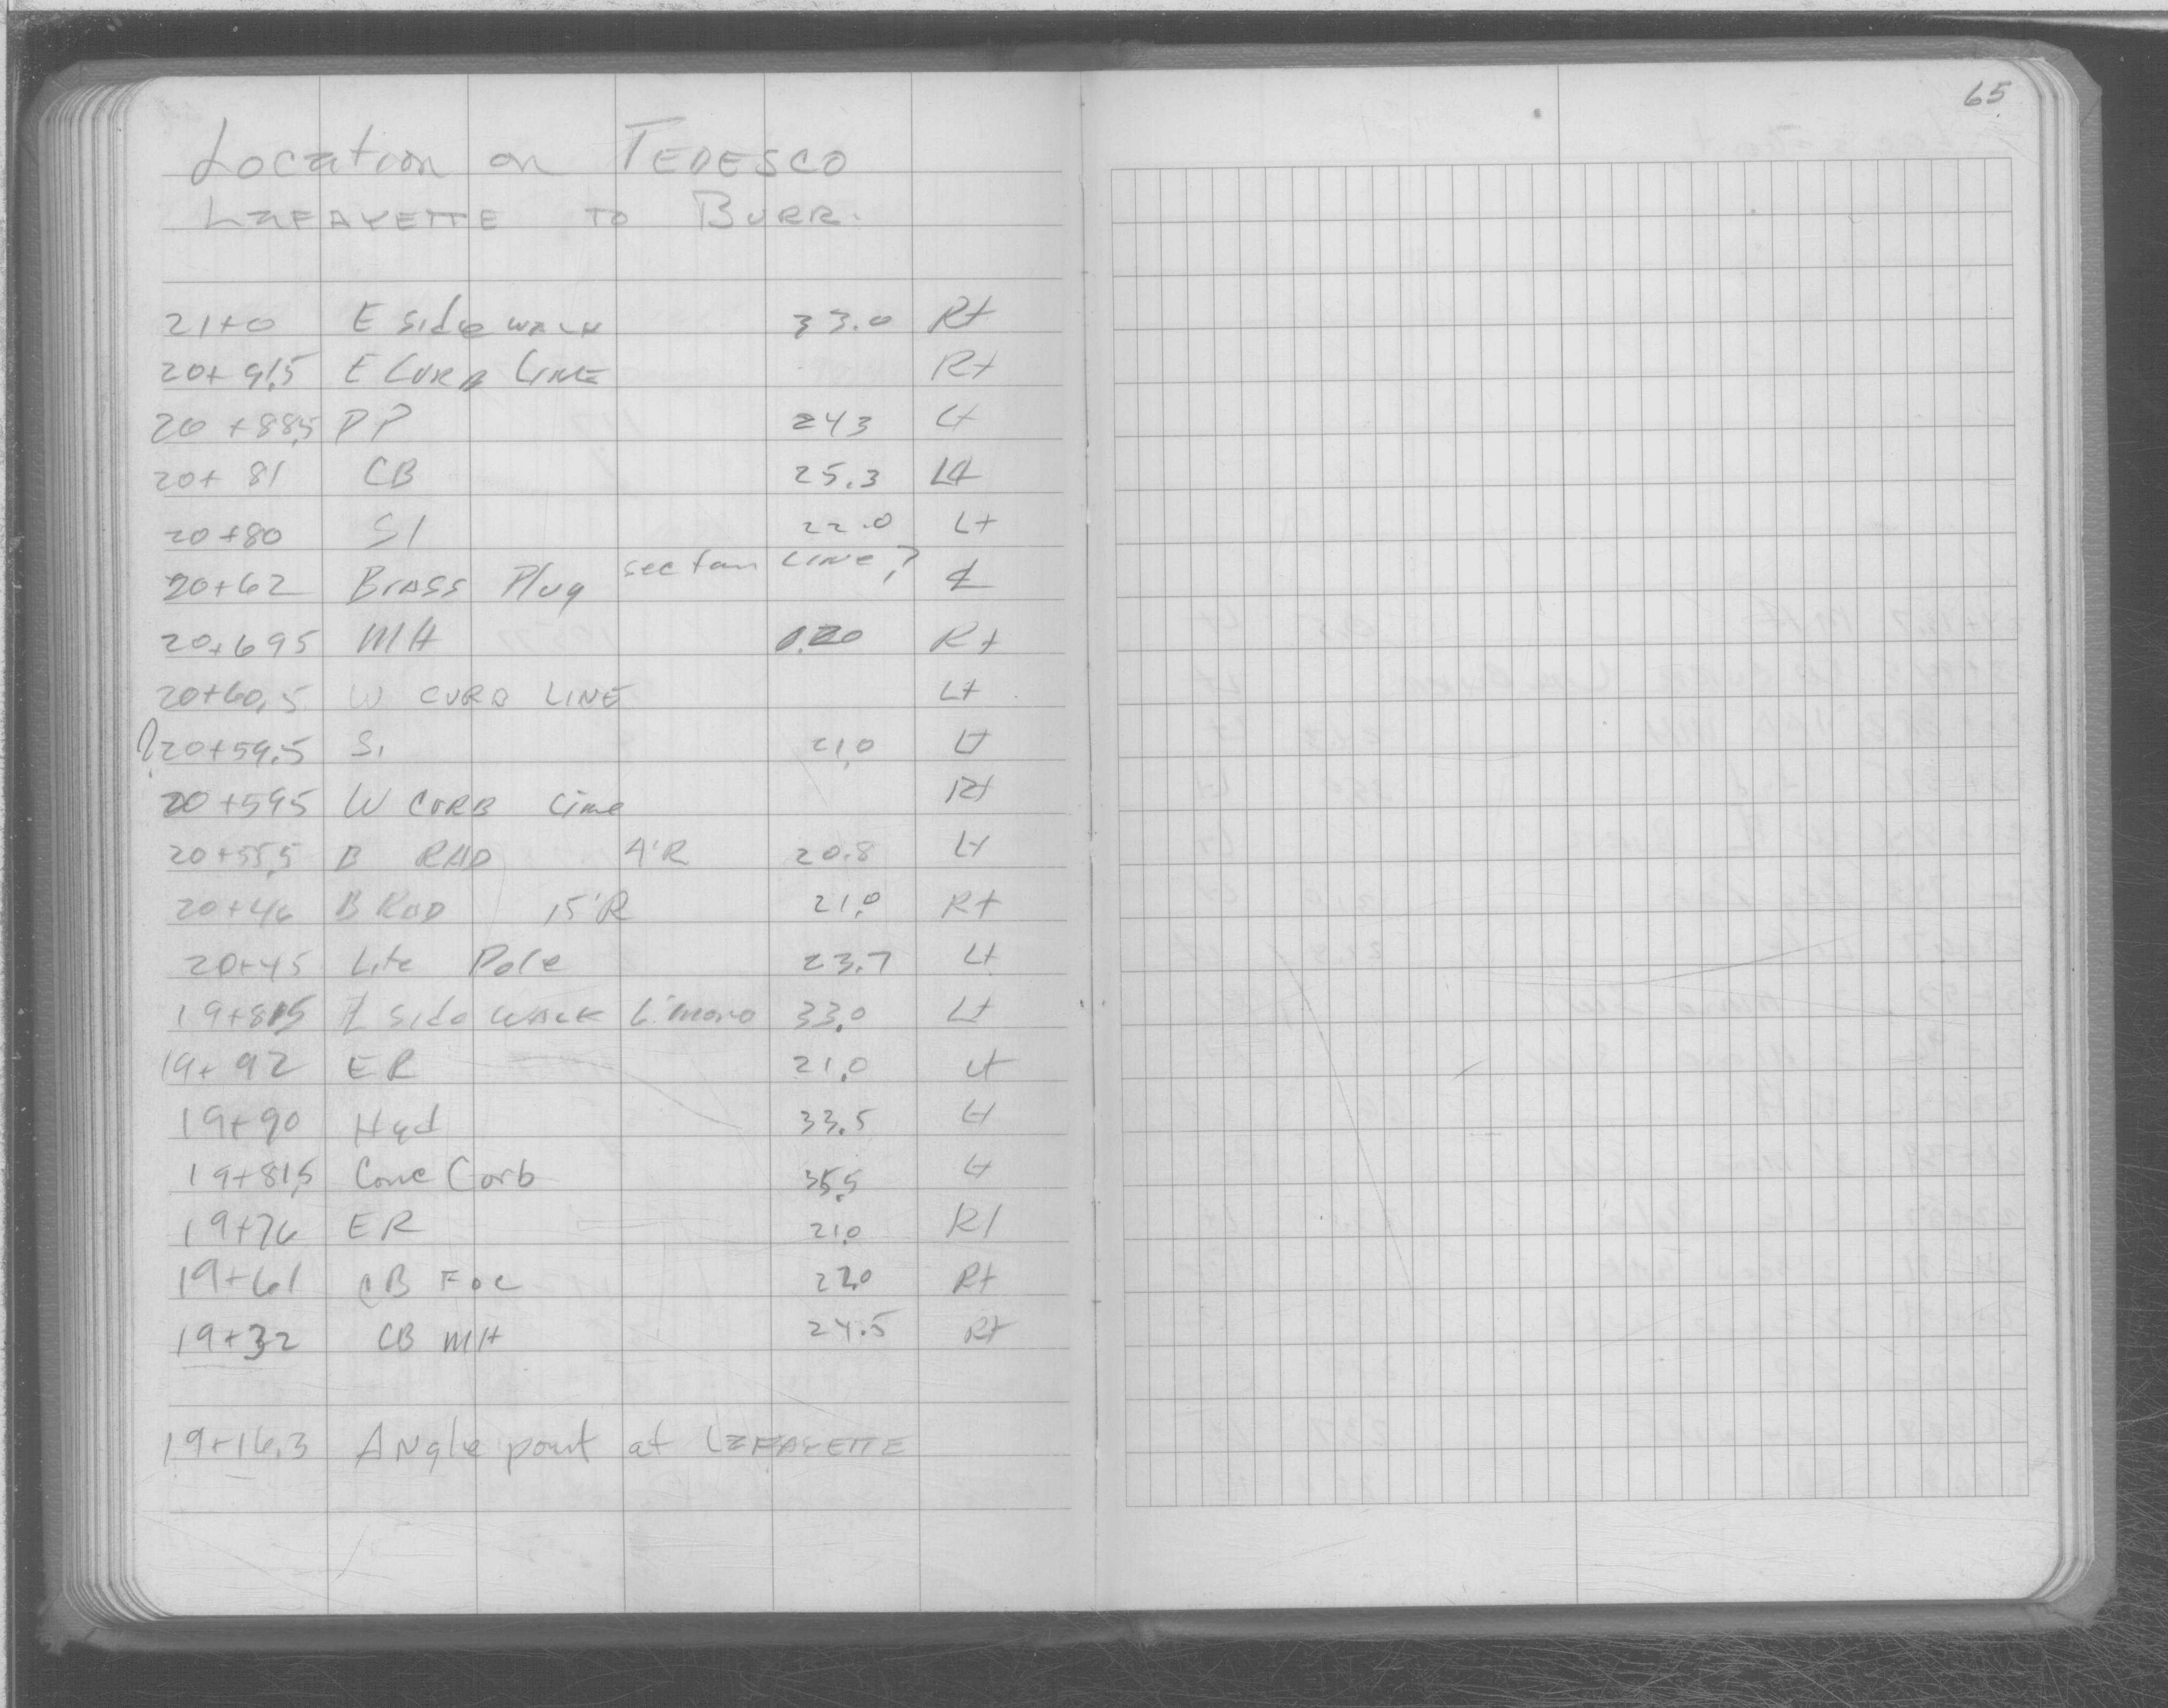 65
Location on TEDESCO
LAFAYETTE TO BURR.
21+0 E Sidewalk 33.0 Rt
20+91.5 E CURB LINE Rt
20+88.5 PP 24.3 Lt
20+81 CB 25.3 Lt
20+80 SI 22.0 Lt
20+62 Brass Plug section LINE? ℄
20+69.5 MH 0.20 Rt
20+60.5 W CURB LINE Lt
?20+59.5 S. 21.0 Lt
20+59.5 W CURB Line Rt
20+55.5 B RAD 4'R 20.8 Lt
20+46 B RAD 15'R 21.0 Rt
20+45 Lite Pole 23.7 Lt
19+81.5 Sidewalk 6' mono 33.0 Lt
19+92 ER 21.0 Lt
19+90 Hyd 33.5 Lt
19+81.5 Conc Corb 35.5 Lt
19+76 ER 21.0 Rt
19+61 CB FOC 22.0 Rt
19+32 CB MH 24.5 Rt
19+16.3 Angle point at LAFAYETTE